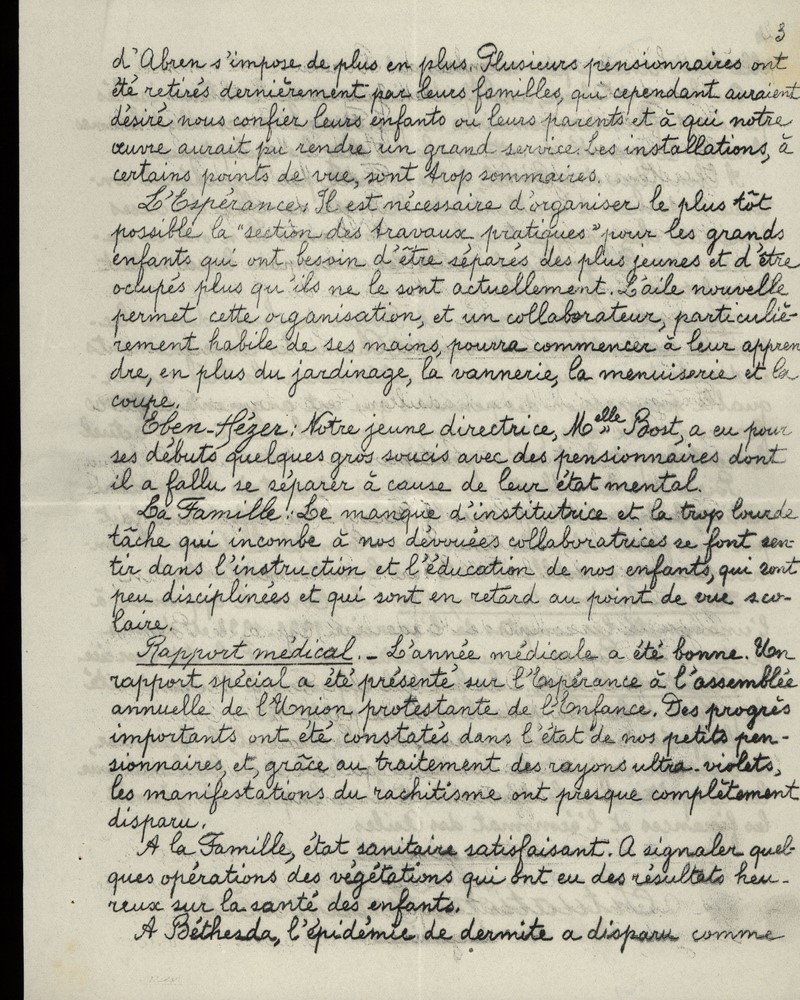 3
d'Abren s'impose de plus en plus. Plusieurs pensionnaires ont
été retirés dernièrement par leurs familles, qui cependant auraient
désiré nous confier leurs enfants ou leurs parents et à qui notre
œuvre aurait pu rendre un grand service. Les installations, à
certains points de vue, sont trop sommaires.
L'Espérance: Il est nécessaire d'organiser le plus tôt
possible la "section des travaux pratiques" pour les grands
enfants qui ont besoin d'être séparés des plus jeunes et d'être
occupés plus qu'ils ne le sont actuellement. L'aile nouvelle
permet cette organisation, et un collaborateur, particuliè-
rement habile de ses mains, pourra commencer à leur appren
dre, en plus du jardinage, la vannerie, la menuiserie et la
coupe.
Eben-Hézer: Notre jeune directrice, Melle Bost, a eu pour
ses débuts quelques gros soucis avec des pensionnaires dont
il a fallu se séparer à cause de leur état mental.
La Famille: Le manque d'institutrice et la trop lourde
tâche qui incombe à nos dévouées collaboratrices se font sen-
tir dans l'instruction et l'éducation de nos enfants, qui sont
peu disciplinées et qui sont en retard au point de vue sco-
laire.
Rapport médical. - L'année médicale a été bonne. Un
rapport spécial a été présenté sur l'Espérance à l'assemblée
annuelle de l'Union protestante de l'Enfance. Des progrès
importants ont été constatés dans l'état de nos petits pen-
sionnaires, et, grâce au traitement des rayons ultra-violets,
les manifestations du rachitisme ont presque complètement
disparu.
A la Famille, état sanitaire satisfaisant. A signaler quel-
ques opérations des végétations qui ont eu des résultats heu-
reux sur la santé des enfants.
A Béthesda, l'épidémie de dermite a disparu comme